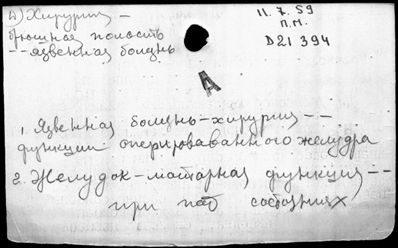 а) Хирургия –
брюшная полость
-- язвенная болезнь
11.7.59
П.М.
D21394
A
1. Язвенная болезнь-хирургия --
функции оперировававанного желудка
2. Желудок-моторная функция --
при пат состояниях